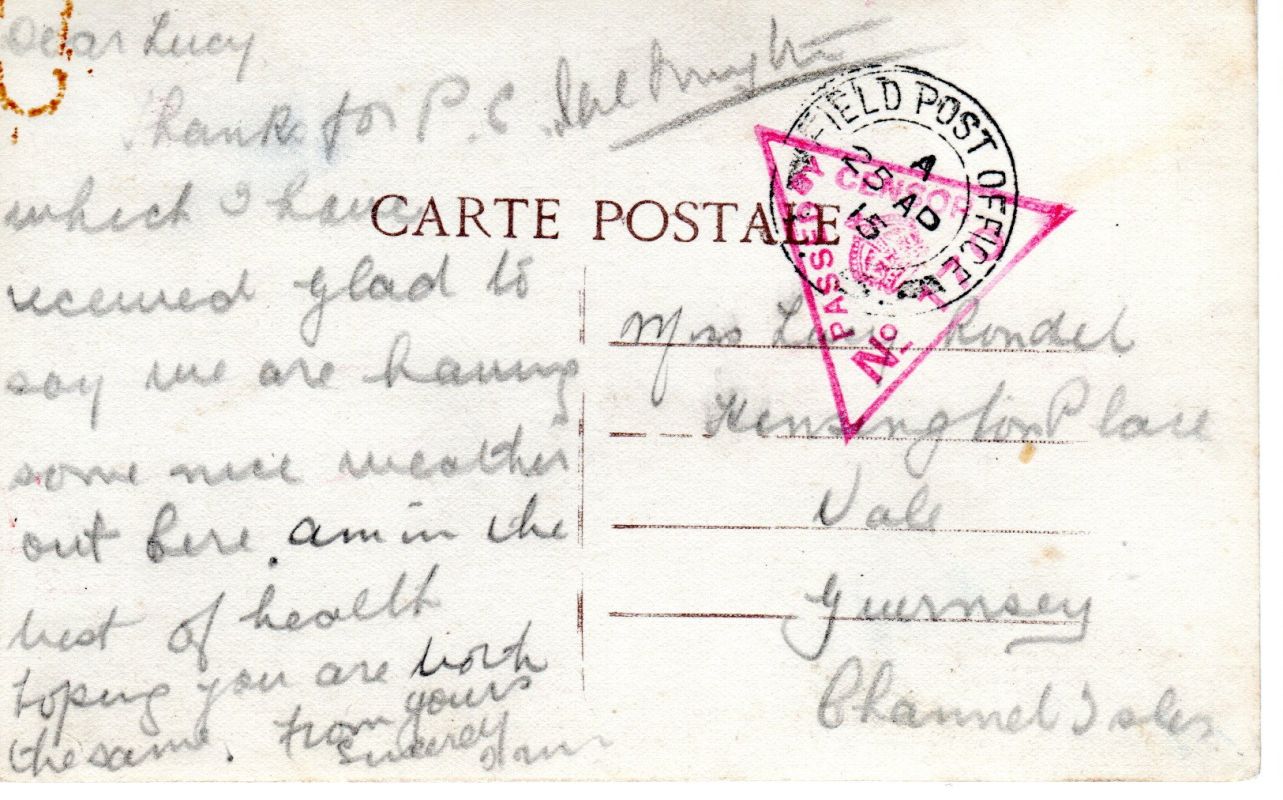 Dear Lucy
Thanks for P.C.
which I have
received glad to
say we are having
some nice weather
out here. am in the
best of health
hoping you are both
the same. From yours
sincerely
CARTE POSTALE
FIELD POST OFFICE
A
25 AP
15
PASSED BY CENSOR
No
Miss Lucy Rondel
Kensington Place
Vale
Guernsey
Channel Isles